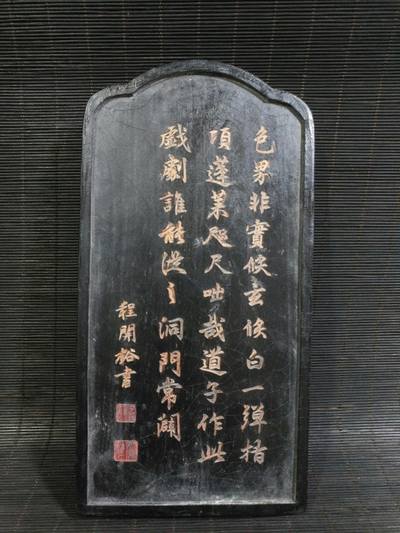 色界非實倏玄倏白一彈指
頃蓬萊咫尺咄哉道子作此
戲劇誰能從之洞門常闢
程開裕書